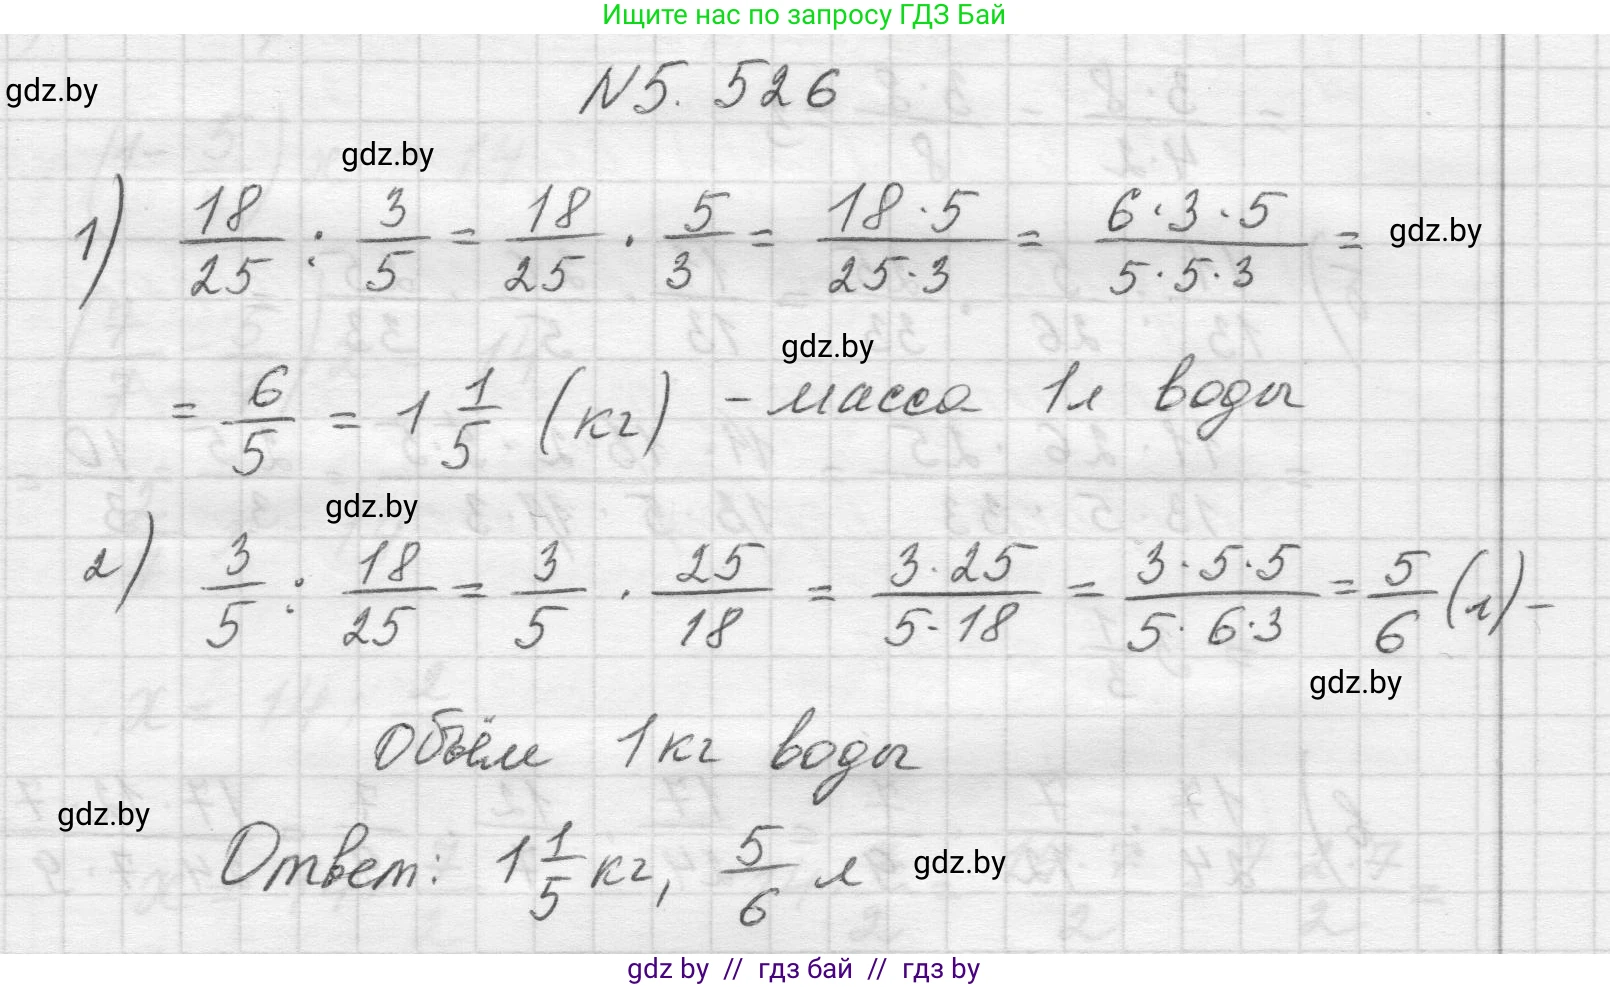 Ищите нас по запросу ГДЗ Бай
gdz.by
N5. 526
gdz.by
1) 18/25 : 3/5 = 18/25 · 5/3 = 18·5/25·3 = 6·3·5/5·5·3 =
gdz.by
gdz.by
= 6/5 = 1 1/5 (кг) - масса 1л воды
gdz.by
2) 3/5 : 18/25 = 3/5 · 25/18 = 3·25/5·18 = 3·5·5/5·6·3 = 5/6 (л) -
gdz.by
объём 1кг воды
gdz.by
Ответ: 1 1/5 кг, 5/6 л
gdz.by
gdz by // гдз бай // гдз by